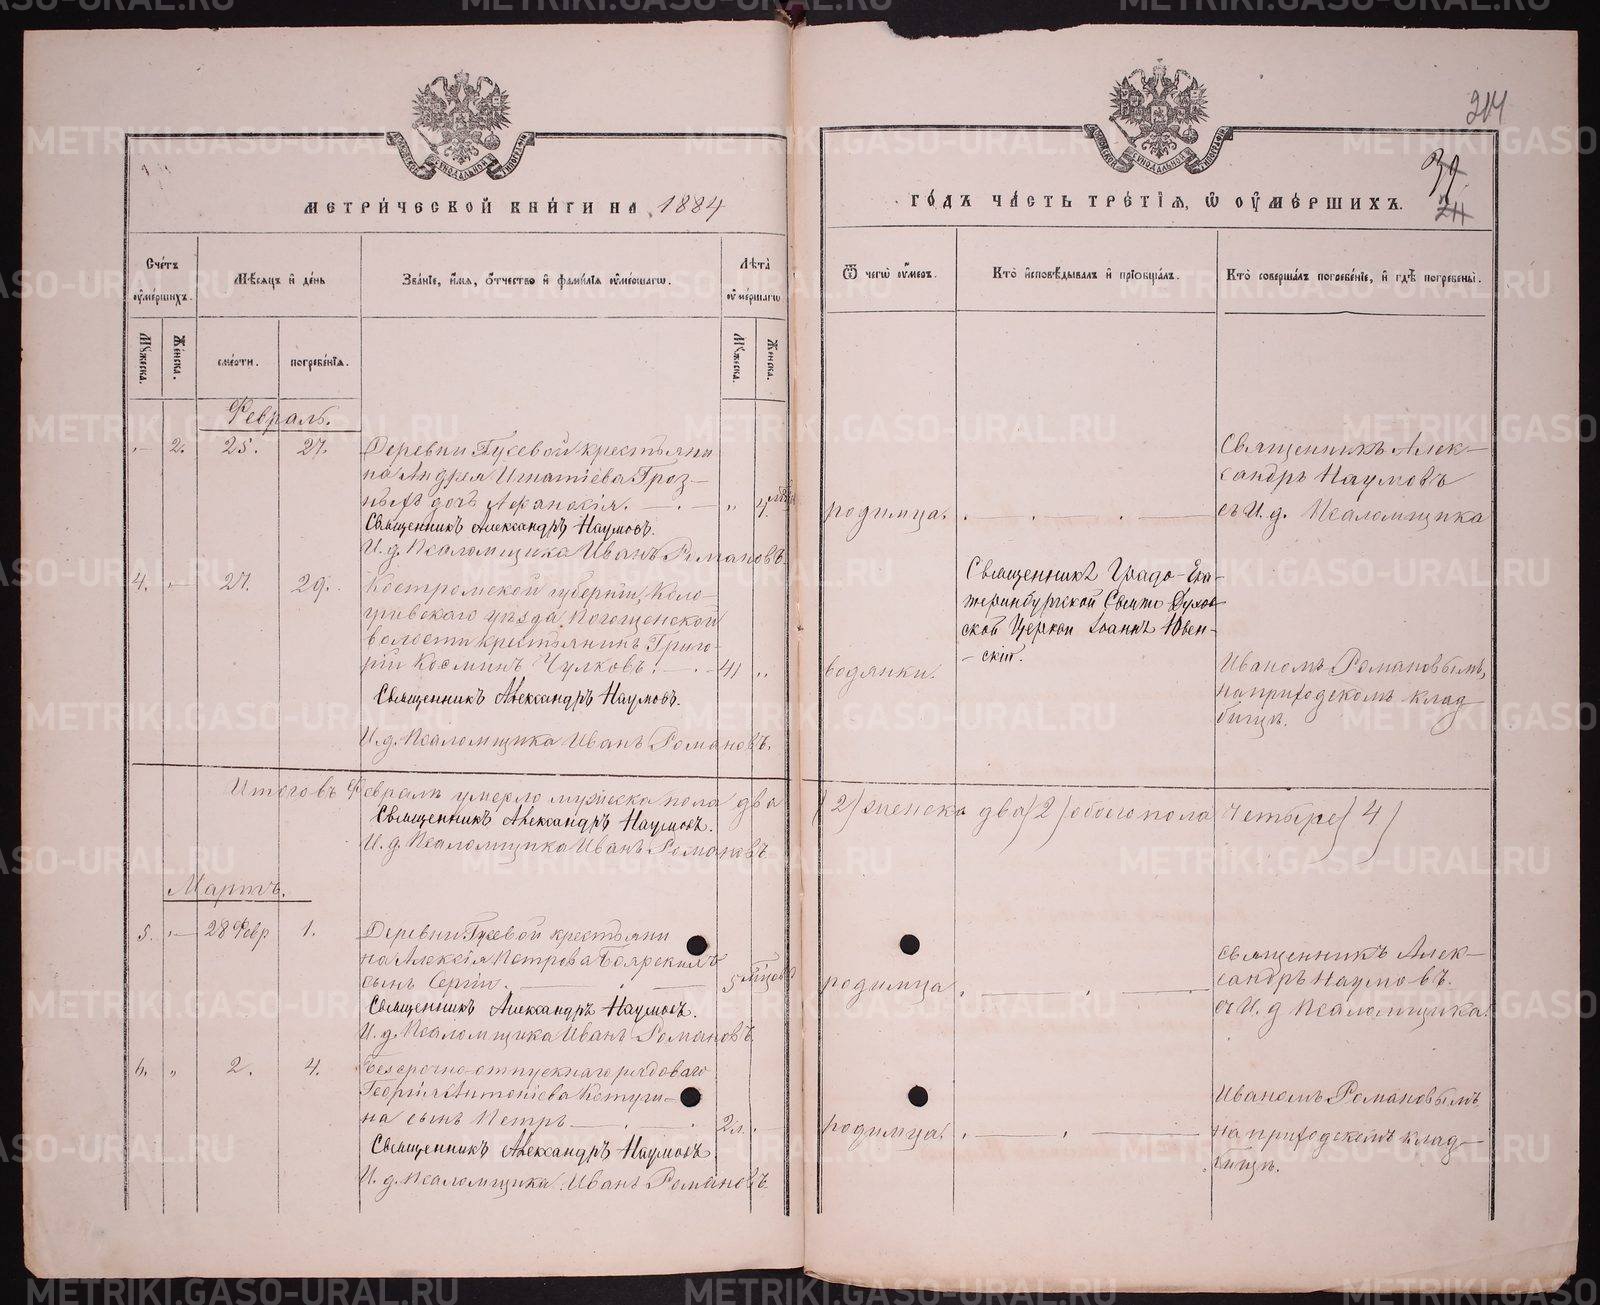 214
39
МЕТРИ́ЧЕСКОЙ КНИ́ГИ НА 1884
ГО́ДЪ ЧА́СТЬ ТРЕ́ТІЯ, Ѡ ОУ҆МЕ́РШИХЪ.
Сче́тъ оу҆ме́ршихъ.
Мѣ́сяцъ и҆ де́нь
Зва́ніе, и҆́мя, ѻ҆́тчество и҆ фами́лія оу҆ме́ршагѡ.
Лѣта̀ оу҆ме́ршагѡ
Ѿ чегѡ̀ оу҆́меръ.
Кто̀ и҆сповѣ́дывалъ и҆ пріѡбща́лъ.
Кто̀ соверша́лъ погребе́ніе, и҆ гдѣ̀ погребены̀.
Му́жеска.
Же́нска.
сме́рти.
погребе́нія.
Му́жеска.
Же́нска.
Февраль.
„ 2. 25. 27. Деревни Гусевой крестьяни
на Андрея Игнатіева Гроз-
ныхъ дочь Афанасія. „ 4
Священникъ Александръ Наумовъ.
И. д. Псаломщика Иванъ Романовъ.
родимца.
Священникъ Алек-
сандръ Наумовъ
съ И. д. Псаломщика
4. „ 27. 29. Костромской губерніи, Коло-
гривскаго уѣзда,
волости крестьянинъ Григо-
рій Косминъ Чулковъ. 41 „
Священникъ Александръ Наумовъ.
И. д. Псаломщика Иванъ Романовъ.
водянки.
Священникъ Градо-Ека-
теринбургской Свято Духов
ской Церкви Іоаннъ Ювен-
скій.
Иваномъ Романовымъ,
на приходскомъ клад
бищѣ.
Итого въ Февралѣ умерло мужеска пола два (2) женска два (2) обоего пола четыре (4)
Священникъ Александръ Наумовъ.
И. д. Псаломщика Иванъ Романовъ.
Мартъ.
5. „ 28 Февр 1. Деревни Гусевой крестьяни
на Алексія Петрова Боярскихъ
сынъ Сергій. 5
Священникъ Александръ Наумовъ.
И. д. Псаломщика Иванъ Романовъ.
родимца
священникъ Алек-
сандръ Наумовъ.
съ И. д Псаломщика
6. „ 2. 4. Безсрочно-отпускнаго рядоваго
Георгія Антоніева Кетуги-
на сынъ Петръ 2 л.
Священникъ Александръ Наумовъ.
И. д. Псаломщика Иванъ Романовъ.
родимца.
Иваномъ Романовымъ
на приходскомъ клад-
бищѣ.
METRIKI.GASO-URAL.RU